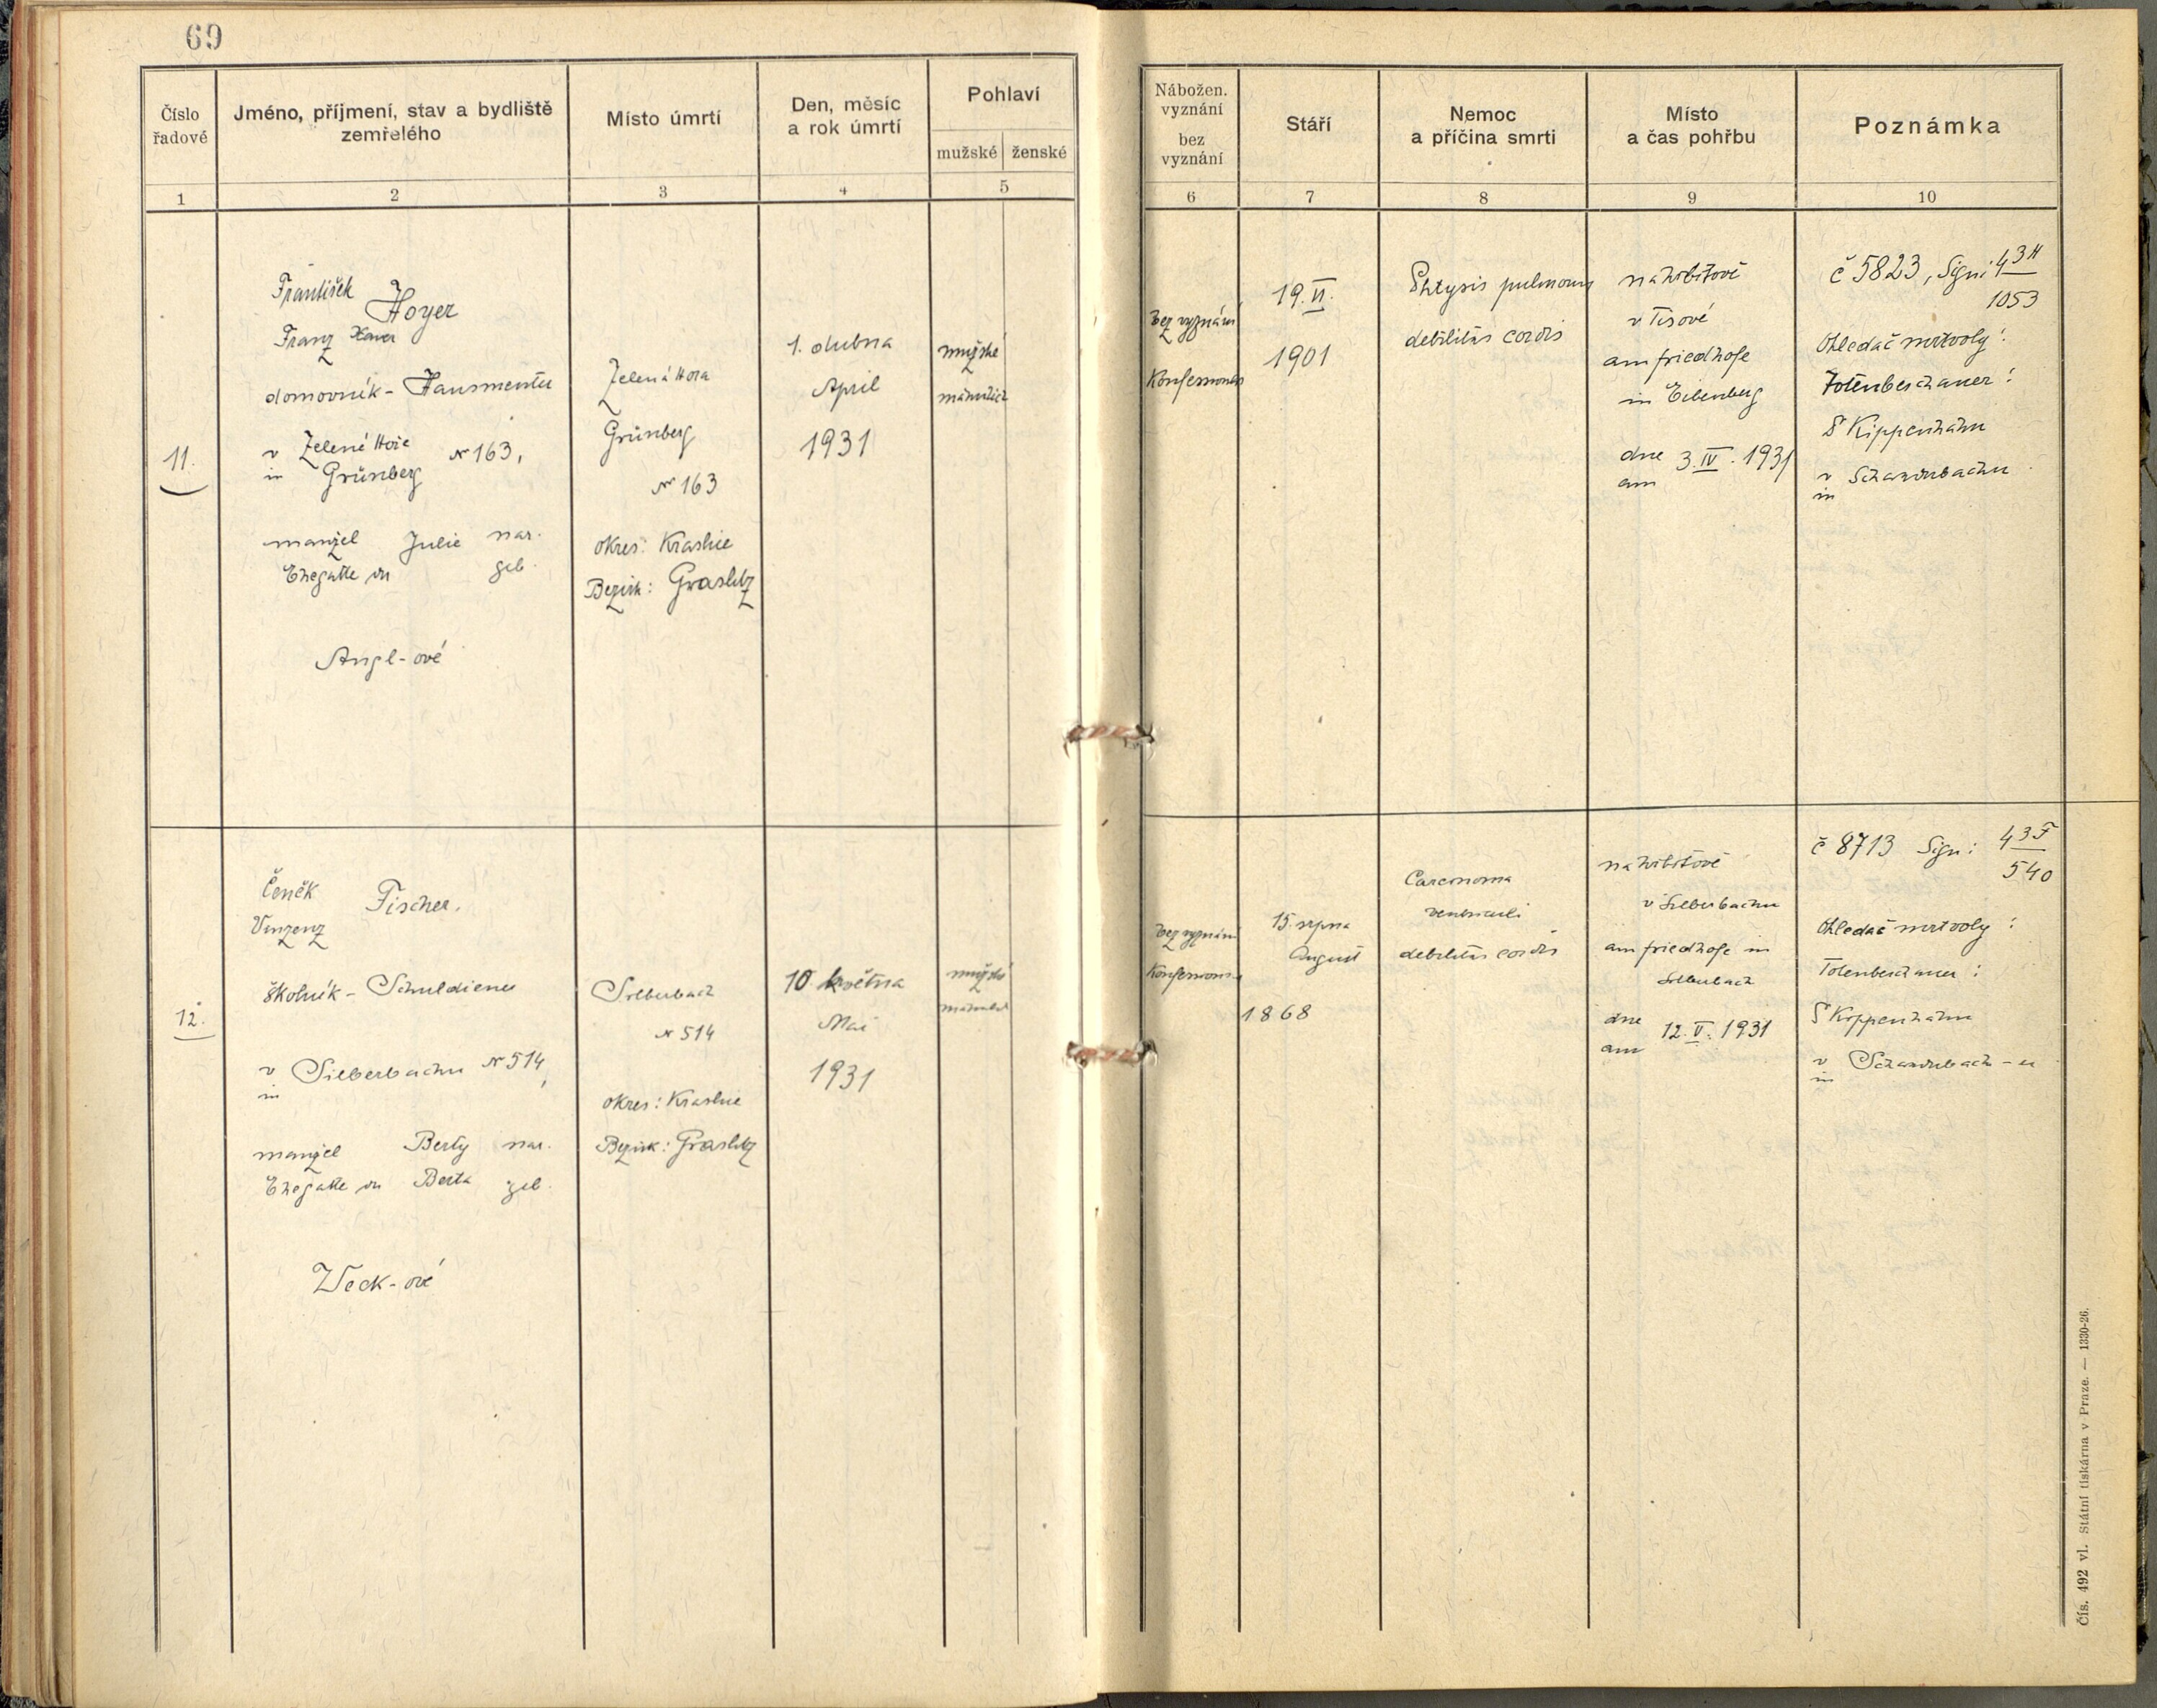 69
Číslo řadové
Jméno, příjmení, stav a bydliště zemřelého
Místo úmrtí
Den, měsíc a rok úmrtí
Pohlaví
mužské ženské
Nábožen. vyznání
bez vyznání
Stáří
Nemoc a příčina smrti
Místo a čas pohřbu
Poznámka
1 2 3 4 5 6 7 8 9 10
11.
František
Hoyer
Franz Xaver
domovník -
v Zelené Hoře № 163,
in Grünberg
manžel Julie nar.
Ehegatte der geb.
Angl-ové
Zelená Hora
Grünberg
№ 163
okres: Kraslice
Bezirk: Graslitz
1. dubna
April
1931
mužské
männlich
bez vyznání
Konfessionslos
19. VI.
1901
Phtysis pulmonum
debilitas cordis
na hřbitově
v Tisové
am Friedhofe
in Eibenberg
dne 3. IV. 1931
am
č 5823, Sign: 43H
1053
Ohledač mrtvoly:
Totenbeschauer:
Kippenhahn
v
in
12.
Čeněk
Fischer.
Vinzenz
školník - Schuldiener
v Silberbachu № 514,
in
manžel Berty nar.
Ehegatte der Berta geb.
Weck-ové
Silberbach
№ 514
okres: Kraslice
Bezirk: Graslitz
10 května
Mai
1931
mužské
männlich
bez vyznání
Konfessionslos
15. srpna
August
1868
Carcinoma
ventriculi
debilitas cordis
na hřbitově
v Silberbachu
am Friedhofe in
Silberbach
dne 12. V. 1931
am
č 8713 Sign: 43F
540
Ohledač mrtvoly:
Totenbeschauer:
Kippenhahn
v
in
Čís. 492 vl. Státní tiskárna v Praze. — 1330-26.